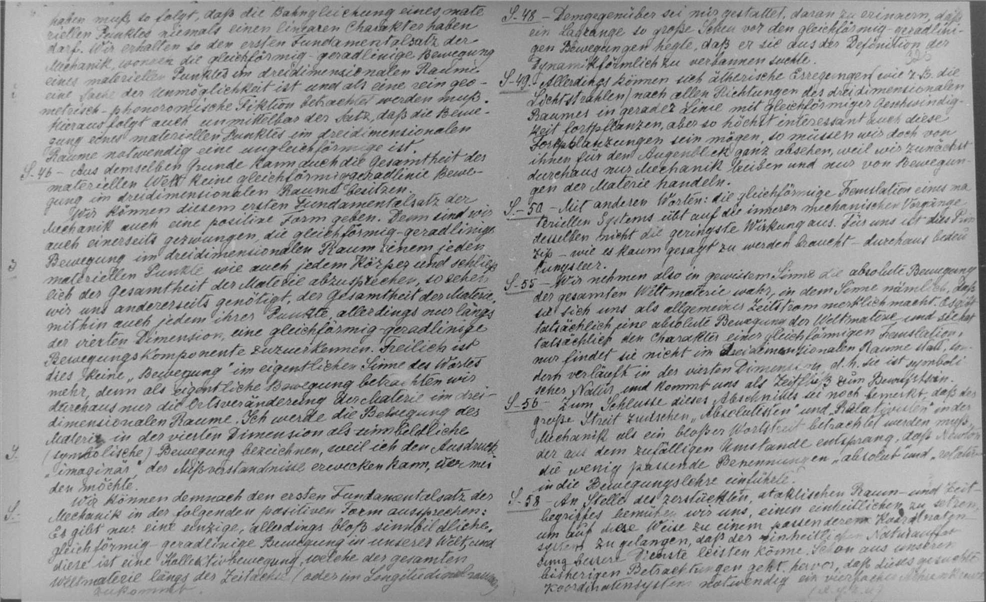 haben muß so folgt, daß die Bahngleichung eines mate
riellen Punktes niemals einen linearen Charakter haben
darf. Wir erhalten so den ersten Fundamentalsatz der
Mechanik, wonach die gleichförmig-geradlinige Bewegung
eines materiellen Punktes im dreidimensionalen Raume
eine Sache der Unmöglichkeit ist und als eine rein geo-
metrisch-phoronomische Fiktion betrachtet werden muß.
Hieraus folgt auch unmittelbar der Satz, daß die Bewe-
gung eines materiellen Punktes im dreidimensionalen
Raume notwendig eine ungleichförmige ist.
S. 46 - Aus demselben Grunde kann auch die Gesamtheit der
materiellen Welt keine gleichförmiggeradlinie Bewe-
gung im dreidimensionalen Raums besitzen.
Wir können diesem ersten Fundamentalsatz der
Mechanik auch eine positive Form geben. Denn sind wir
auch einerseits gezwungen, die gleichförmig-geradlinige
Bewegung im dreidimensionalen Raum einem jeden
materiellen Punkte wie auch jedem Körper und schließ
lich der Gesamtheit der Materie abzusprechen, so sehen
wir uns andererseits genötigt, der Gesamtheit der Materie,
mithin auch jedem ihrer Punkte, allerdings nur längs
der vierten Dimension, eine gleichförmig-geradlinige
Bewegungskomponente zuzuerkennen. Freilich ist
dies keine „Bewegung" im eigentlichen Sinne des Wortes
mehr, denn als eigentliche Bewegung betrachten wir
durchaus nur die Ortsveränderung der Materie im drei-
dimensionalen Raume. Ich werde die Bewegung der
Materie in der vierten Dimension als sinnbildliche
(symbolische) Bewegung bezeichnen, weil ich den Ausdruck
"imaginär" der Mißverständnisse erwecken kann, vermei
den möchte.
Wir können demnach den ersten Fundamentalsatz der
Mechanik in der folgenden positiven Form aussprechen:
Es gibt nur eine einzige, allerdings bloß sinnbildliche,
gleichförmig-geradlinige Bewegung in unserer Welt, und
diese ist eine Kollektivbewegung, welche der gesamten
Weltmaterie längs der Zeitachse (oder im Longitudinalraum)
zukommt.
S. 48 - Demgegenüber sei mir gestattet, daran zu erinnern, daß
ein Lagrange so große Scheu vor den gleichförmig-geradlini-
gen Bewegungen hegte, daß er sie aus der Definition der
Dynamik förmlich zu verbannen suchte.
S. 49. Allerdings können sich ätherische Erregungen (wie z.B. die
Lichtstrahlen) nach allen Richtungen des dreidimensionalen
Raumes in gerader Linie mit gleichförmiger Geschwindig-
keit fortpflanzen, aber so höchst interessant auch diese
Fortpflanzungen sein mögen, so müssen wir doch von
ihnen für den Augenblick ganz absehen, weil wir zunächst
durchaus nur Mechanik treiben und nur von Bewegun-
gen der Materie handeln.
S. - 50 - Mit anderen Worten: die gleichförmige Translation eines ma
teriellen Systems übt auf die inneren mechanischen Vorgänge
desselben nicht die geringste Wirkung aus. Für uns ist dies Prin
zip - wie es kaum gesagt zu werden braucht - durchaus bedeu
tungsleer.
S. - 55 - Wir nehmen also in gewissem Sinne die absolute Bewegung
der gesamten Weltmaterie wahr, in dem Sinne nämlich, daß
sie sich uns als allgemeiner Zeitstrom merklich macht. Es gibt
tatsächlich eine absolute Bewegung der Weltmaterie und sie hat
tatsächlich den Charakter einer gleichförmigen Translation,
nur findet sie nicht im dreidimensionalen Raume statt, son-
dern verläuft in der vierten Dimension, d.h. sie ist symboli
scher Natur und kommt uns als Zeitfluß zum Bewußtsein.
S - 56 - Zum Schlusse dieses Abschnitts sei noch bemerkt, daß der
große Streit zwischen „Absolutisten" und „Relativisten" in der
Mechanik als ein bloßer Wortstreit betrachtet werden muß,
der aus dem zufälligen Umstande entsprang, daß Newton
die wenig passende Benennungen „absolut und „relativ"
in die Bewegungslehre einführte.
S - 58 - An Stelle des zerstückten, ataktischen Raum- und Zeit-
begriffes bemühen wir uns, einen einheitlichen zu setzen,
um auf diese Weise zu einem passenderem Koordinaten-
system zu gelangen, daß der einheitlichen Naturauffas
sung bessere Dienste leisten könne. Schon aus unseren
bisherigen Betrachtungen geht hervor, daß dieses gesuchte
Koordinatensystem notwendig ein vierfaches Achsenkreuz
(x, y, z, u)